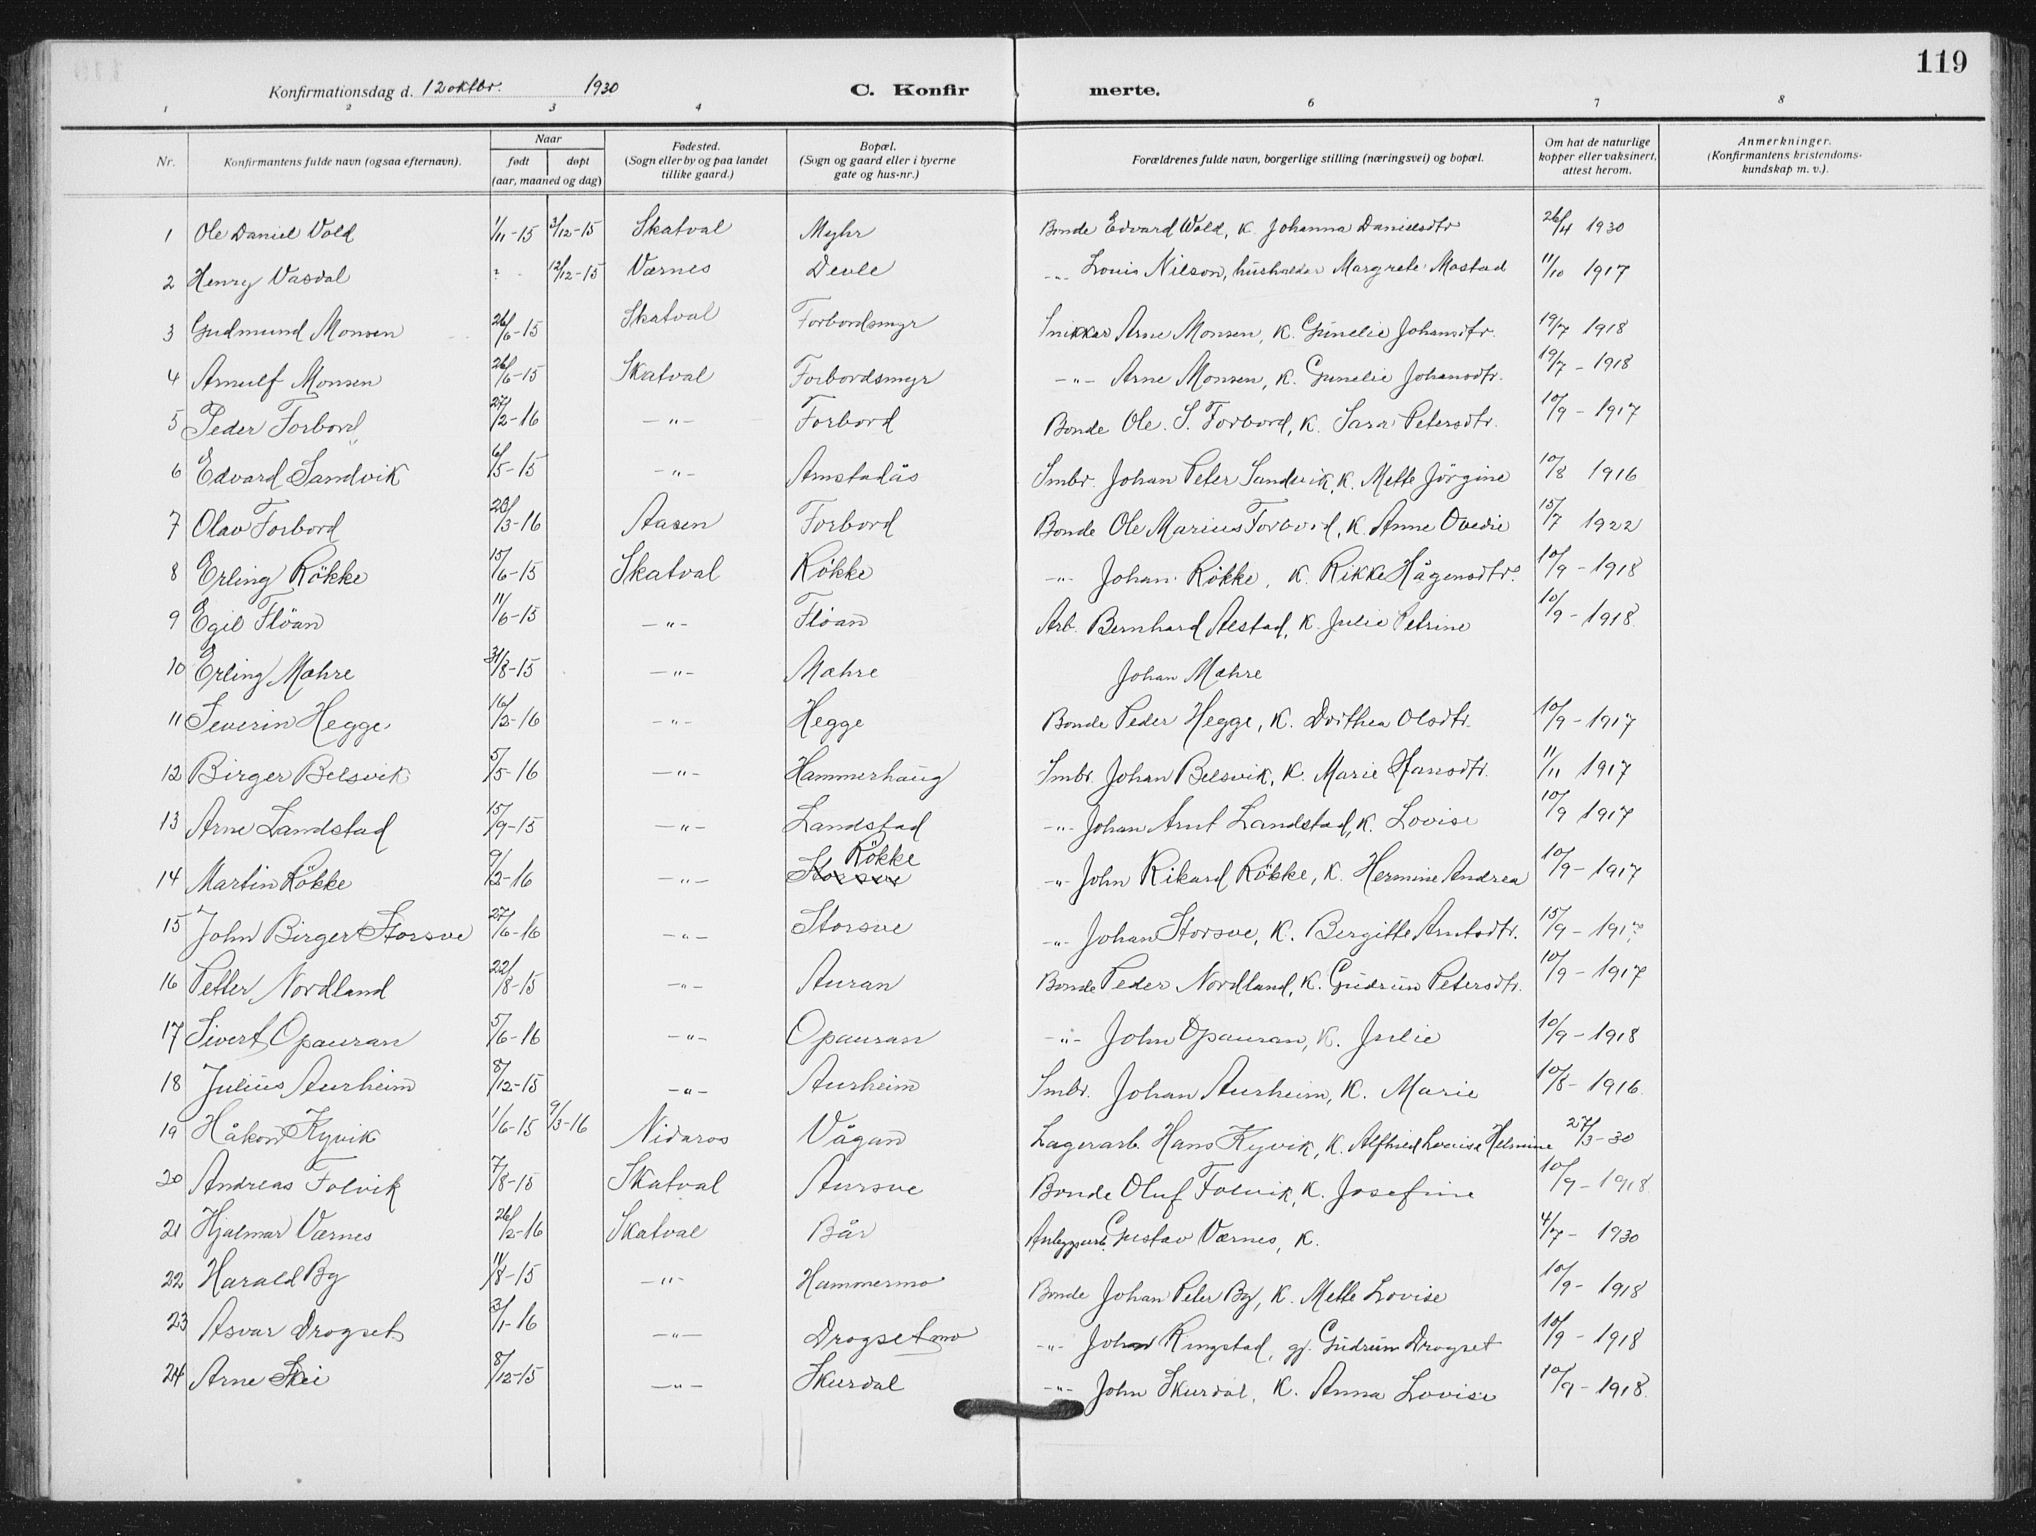 119
Konfirmationsdag d. 12 oktbr. 1930 C. Konfirmerte.
1 2 3 4 6 7 8
Nr. Konfirmantens fulde navn (ogsaa efternavn). Naar født døpt (aar, maaned og dag) Fødested. (Sogn eller by og paa landet tillike gaard.) Bopæl. (Sogn og gaard eller i byerne gate og hus-nr.) Forældrenes fulde navn, borgerlige stilling (næringsvei) og bopæl. Om hat de naturlige kopper eller vaksinert, attest herom. Anmerkninger. (Konfirmantens kristendoms-kundskap m. v.).
1 Ole Daniel Vold 1/11-15 3/12-15 Skatval Myhr Bonde Edvard Wold, K. Johanna Danielsdtr 26/4 1930
2 Henry Vasdal ? 12/12-15 Værnes Devle -"- Louis Nilson, husholder Margrete Mostad 11/10 1917
3 Gudmund Monsen 26/6-15 Skatval Forbordsmyr Snikker Arne Monsen, K. Gunelie Johansdtr. 19/7 1918
4 Arnulf Monsen 26/6-15 Skatval Forbordsmyr -"- Arne Monsen, K. Gunelie Johansdtr. 19/7 - 1918
5 Peder Forbord 27/2-16 -"- Forbord Bonde Ole. S. Forbord, K. Sara Petersdtr. 10/9 - 1917
6 Edvard Sandvik 6/5-15 -"- Arnstadås Smbr. Johan Peter Sandvik, K. Mette Jörgine 10/8 1916
7 Olav Forbord 23/3-16 Aasen Forbord Bonde Ole Marius Forbord, K. Anne Ovedie 15/7 1922
8 Erling Rökke 15/6-15 Skatval Rökke -"- Johan Rökke, K. Rikke Hågensdtr. 10/9 - 1918
9 Egil Flöan 11/6-15 -"- Flöan Arb. Bernhard Alstad, K. Julie Petrine 10/9 - 1918.
10 Erling Mæhre 31/8-15 -"- Mæhre Johan Mæhre
11 Severin Hegge 16/2-16 -"- Hegge Bonde Peder Hegge, K. Dorthea Olsdtr. 10/9 - 1917
12 Birger Belsvik 5/5-16 -"- Hammerhaug Smbr. Johan Belsvik, K. Marie Hansdtr. 11/11 1917
13 Arne Landstad 15/9-15 -"- Landstad -"- Johan Arnt Landstad, K. Lovise 10/9 1917
14 Martin Rökke 9/2-16 -"- Storsve Rökke -"- John Rikard Rökke, K. Hermine Andrea 10/9 - 1917
15 John Birger Storsve 27/6-16 -"- Storsve -"- Johan Storsve, K. Bergitte Arntsdtr. 15/9 - 1917
16 Petter Nordland 22/8-15 -"- Auran Bonde Peder Nordland, K. Gudrun Petersdtr. 10/9 - 1917
17 Sivert Opauran 5/6-16 -"- Opauran -"- John Opauran, K. Julie 10/9 - 1918
18 Julius Aurheim 8/12-15 -"- Aurheim Smbr. Johan Aurheim, K. Marie 10/8 - 1916
19 Håkon Kyvik 1/6-15 9/3-16 Nidaros Vågan Lagerarb. Hans Kyvik, K. Alfhied Lovise Helmine 27/3-30
20 Andreas Folvik 7/8-15 Skatval Aursve Bonde Oluf Folvik, K. Josefine 10/9 - 1918
21 Hjalmar Værnes 26/2-16 Skatval Bår Anlegsarb. Gustav Værnes, K. 4/7 - 1930
22 Harald By 11/8-15 -"- Hammermo Bonde Johan Peter By, K. Mette Lovise 10/9 - 1918
23 Asvar Drogset 3/1-16 -"- Drogsetmo -"- Johan Ringstad, gj. Gudrun Drogset 10/9 - 1918
24 Arne Skei 8/12-15 -"- Skurdal -"- John Skurdal, K. Anna Lovise 10/9 - 1918.